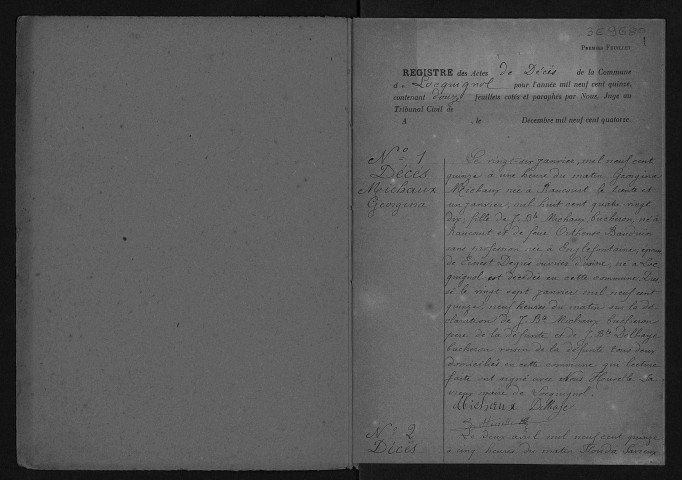 3E9680
1
Premier Feuillet
REGISTRE des Actes de Décès de la Commune
à Locquignol pour l'année mil neuf cent quinze,
contenant douze feuillets cotés et paraphés par Nous, Juge au
Tribunal Civil de
A , le Décembre mil neuf cent quatorze.
N° 1
Décès
Michaux
Georgina
Le vingt six janvier, mil neuf cent
quinze à une heure du matin Georgina
Michaux née à Raucourt le trente et
un janvier, mil huit cent quatre vingt
dix fille de J. Bte Michaux bucheron, né à
Raucourt et de feue Orphense Baudouin
sans profession née à Englefontaine, épouse
de Ernest né à Loc
quignol est décédée en cette commune. Dres
sé le vingt sept janvier mil neuf cent
quinze, neuf heures du matin sur la dé
claration de J. Bte Michaux bucheron
père de la défunte et de J. Bte Delhaye
bucheron voisin de la défunte tous deux
domiciliés en cette commune qui lecture
faite ont signé avec Nous
maire de Locquignol.
Michaux Delhaye
N° 2
Décès
Le deux avril mil neuf cent quinze
à cinq heures du matin Florida